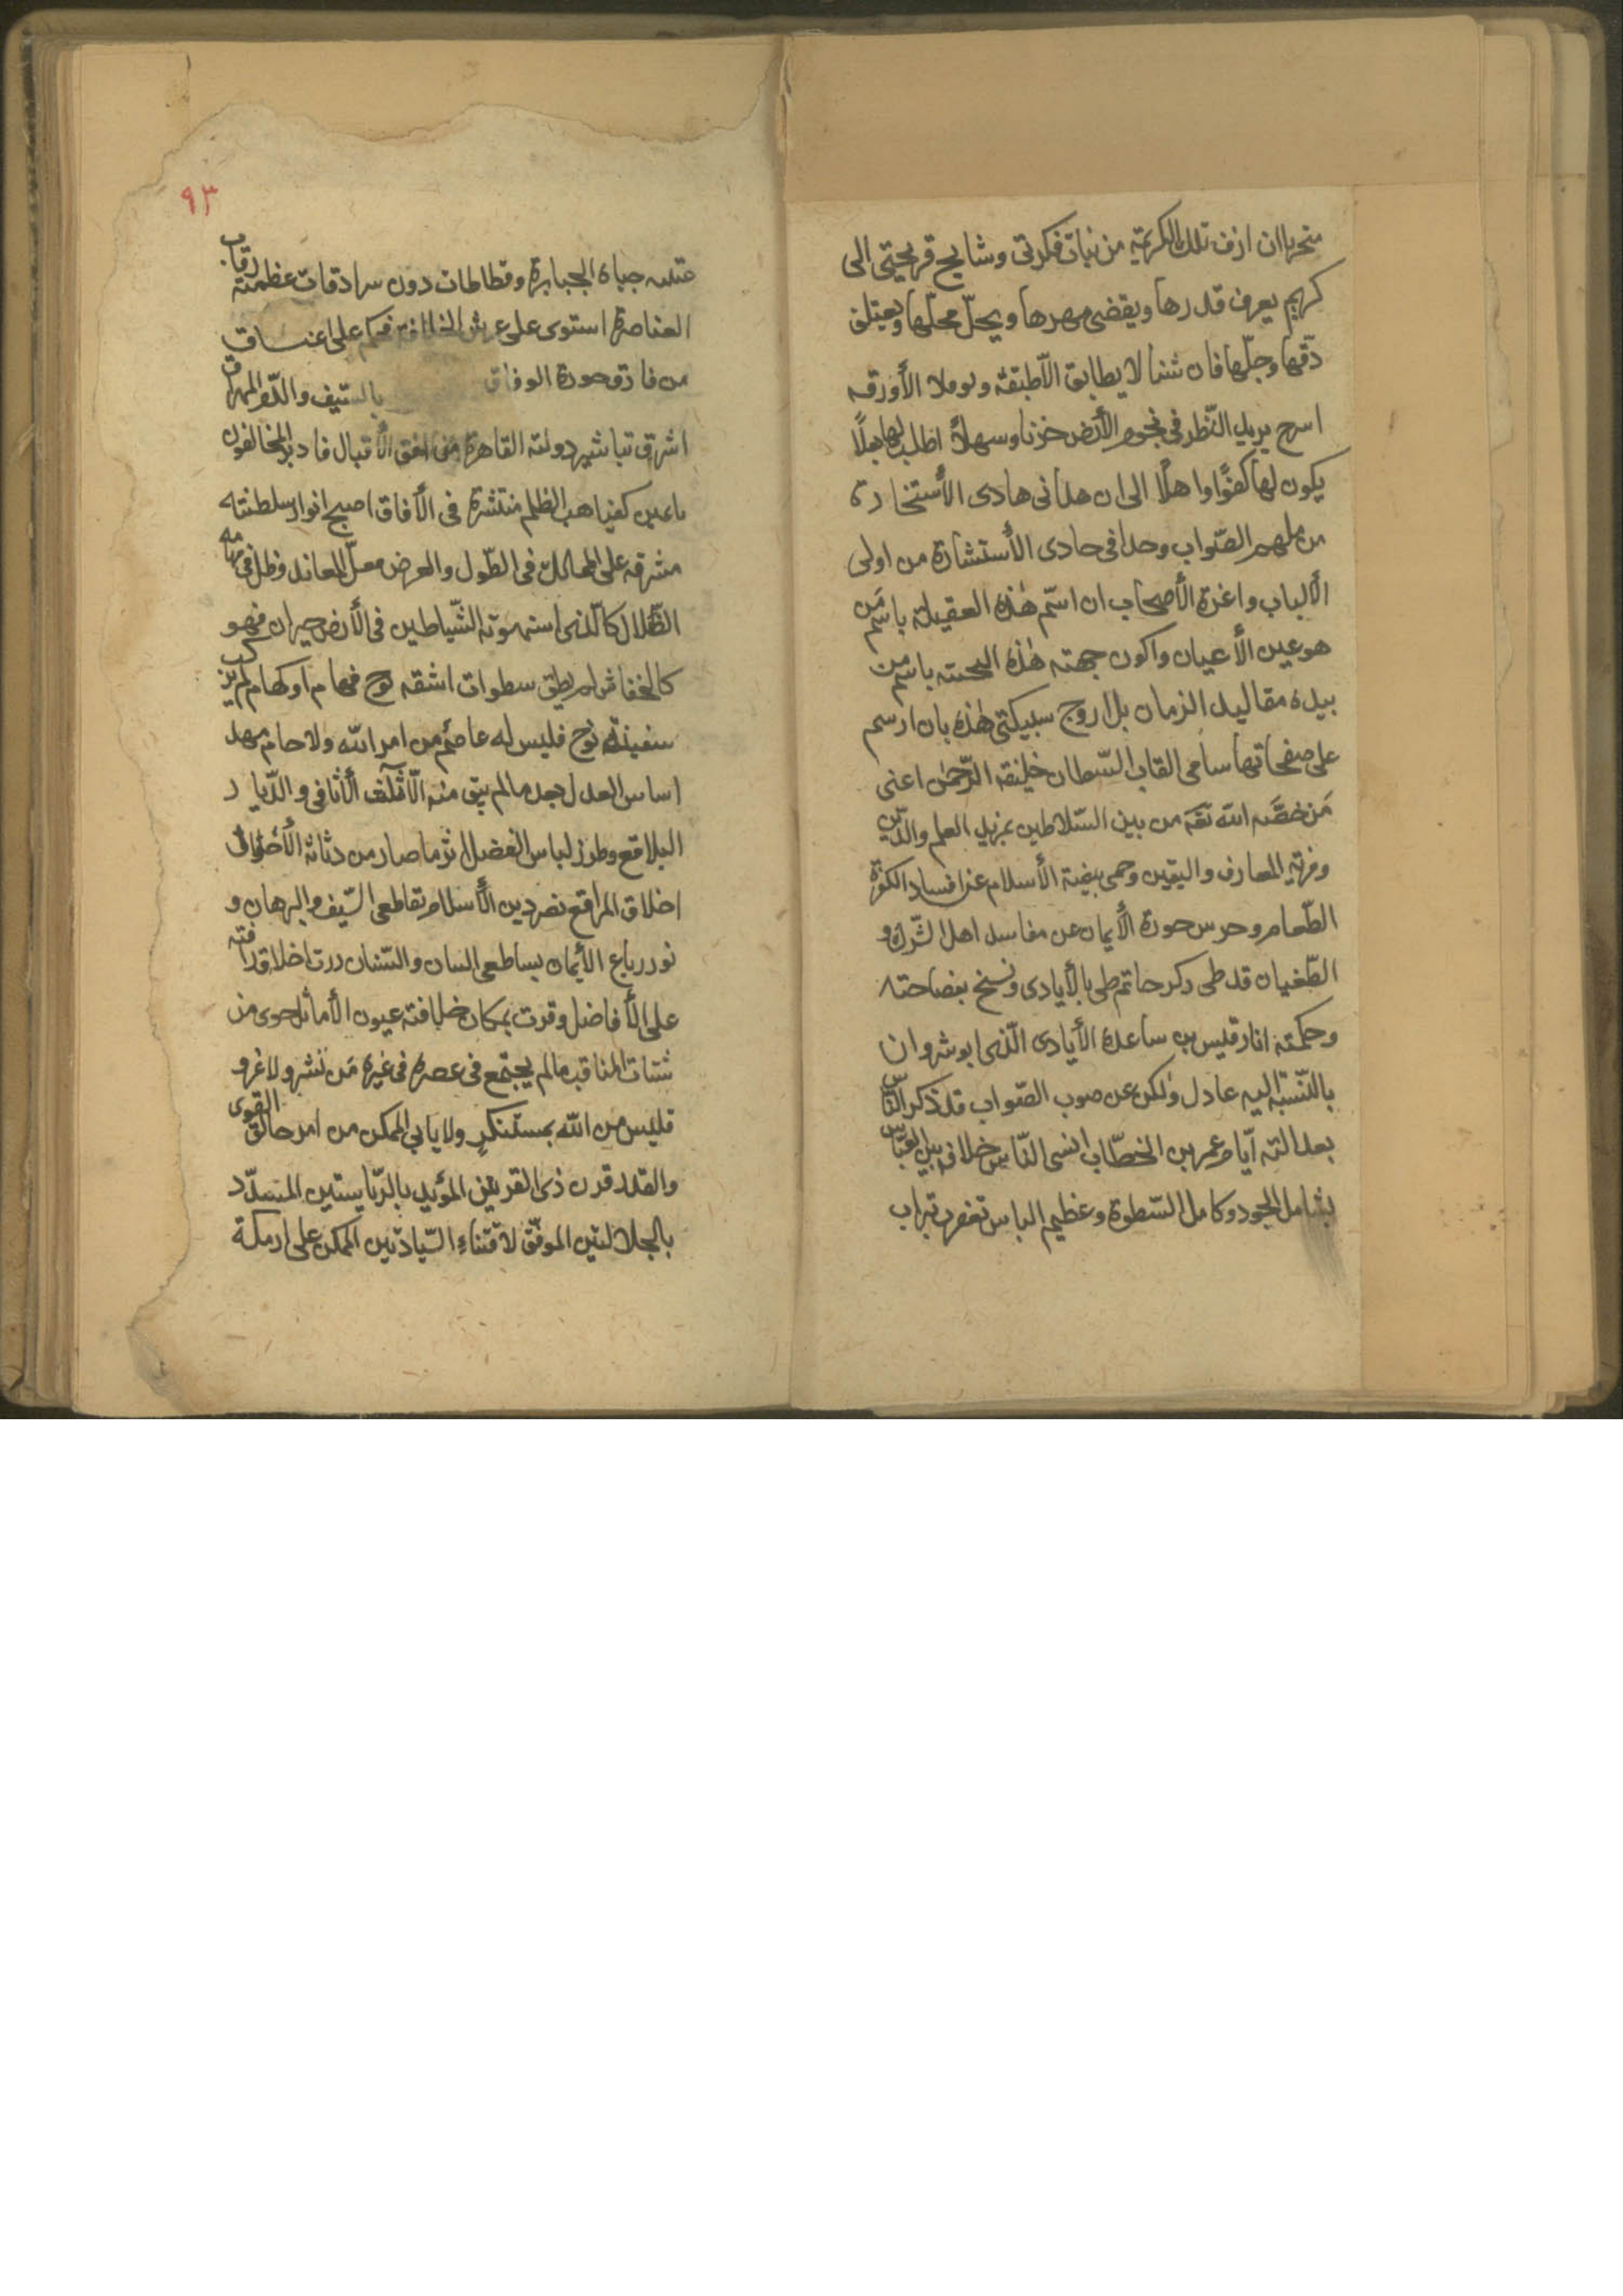 متحريا ان ازف تلك الكريمة من نبات فكرتى وشايح قريحتى الى
كريم يعرف قدرها ويقضى مهرها ويحل محلها ويعتلق
دقها وجلها فان شنا لا يطابق الا طبقه ولا الأورقه
اسرح بريد النظر فى نجوم الأرض حزنا وسهلاً اطلب لها بعلاً
يكون لها كفوًا واهلًا الى ان هدانى هادى الأستخارة
من ملهم الصواب وحدا فى حادى الأستشارة من اولى
الألباب واعزة الأصحاب ان اسّم هذه العقيلة باسم مَن
هو عين الأعيان واكون جهته هذه باسم من
بيده مقاليد الزمان بل اروج سبيكتى هذه بان ارسم
على صفحاتها سامى القاب السّلطان خليفة الرّحمن اعنى
مَن خصَّه الله تعَه من بين السّلاطين بمزيد العلم والدّين
وفرية المعارف واليقين وحمى بيضة الأسلام عن افساد الكفرة
الطّعام وحرس حوزة الأيمان عن مفاسد اهل الشّرك و
الطّغيان قد طى ذكر حاتم طى بالأيادى ونسخ بفصاحته
وحكمته اثار قيس بن ساعدة الأيادى الّذى ابوشروان
بالنّسبة اليه عادل ولكن عن صوب الصّواب قد ذكر النّاس
بعدالته ايّام عمر بن الخطّاب انسى النّاس خلافة بنى العبّاس
بشامل الجود وكامل السّطوة وعظيم الباس تعفرت بتراب
٩٣
عتبته جباه الجبابرة وقطاطات دون سرادقات عظمته رقاب
القناصرة استوى على عرش الخلافة فحكم على اعنساق
من فارق حوزة الوفاق بالسّيف والدّم المهراق
اشرق تباشير دولته القاهرة من افق الأقبال فادبر المخالفون
باعين كغياهب الظلم منتشرة فى الآفاق اصبح انوار سلطنته
مشرقة على الممالك فى الطّول والعرض معدل المعاند وظل فى مهامه
الظّلال كالّذى استهوته الشّياطين فى الأرض حيران فهو
كالخفاش لم يطق سطوات اشقه يوح فهام او كهام لم يركب
سفينة نوح فليس له عاصم من امر الله ولا حام مهد
اساس العدل بعد ما لم يبق منه الّا ثلاث الأثافى والدّيار
البلاقع وطرز لباس الفضل اثر ما صار من دثاثة الأخلاق
اخلاق المراقع نصر دين الأسلام بقاطعى السّيف والبرهان و
نور رباع الأيمان بساطعى اللسان والسّنان درت اخلاف رافته
على الأفاضل وقرت بمكان خلافته عيون الأماثل حوى من
شتات المناقب ما لم يجتمع فى عصره فى غيره مَن نشر ولا غرو
فليس من الله بمستنكرٍ ولا يابى الممكن من امر خالق القوى
والقدر قرن ذى القرنين المؤيد بالرّياستين المسدّد
بالجلالتين الموفّق لاقتناء السّيادتين الممكن على اريكة